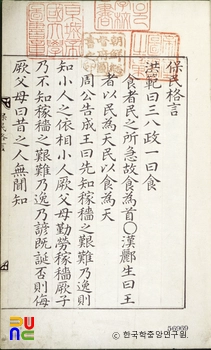 保民格言
洪範曰三八政一曰食
食者民之所急故食為首○漢酈生曰王
者以民為天民以食為天
周公告成王曰先知稼穡之艱難乃逸則
知小人之依相小人厥父母勤勞稼穡厥子
乃不知稼穡之艱難乃逸乃諺旣誕否則侮
厥父母曰昔之人無聞知
ⓒ 한국학중앙연구원